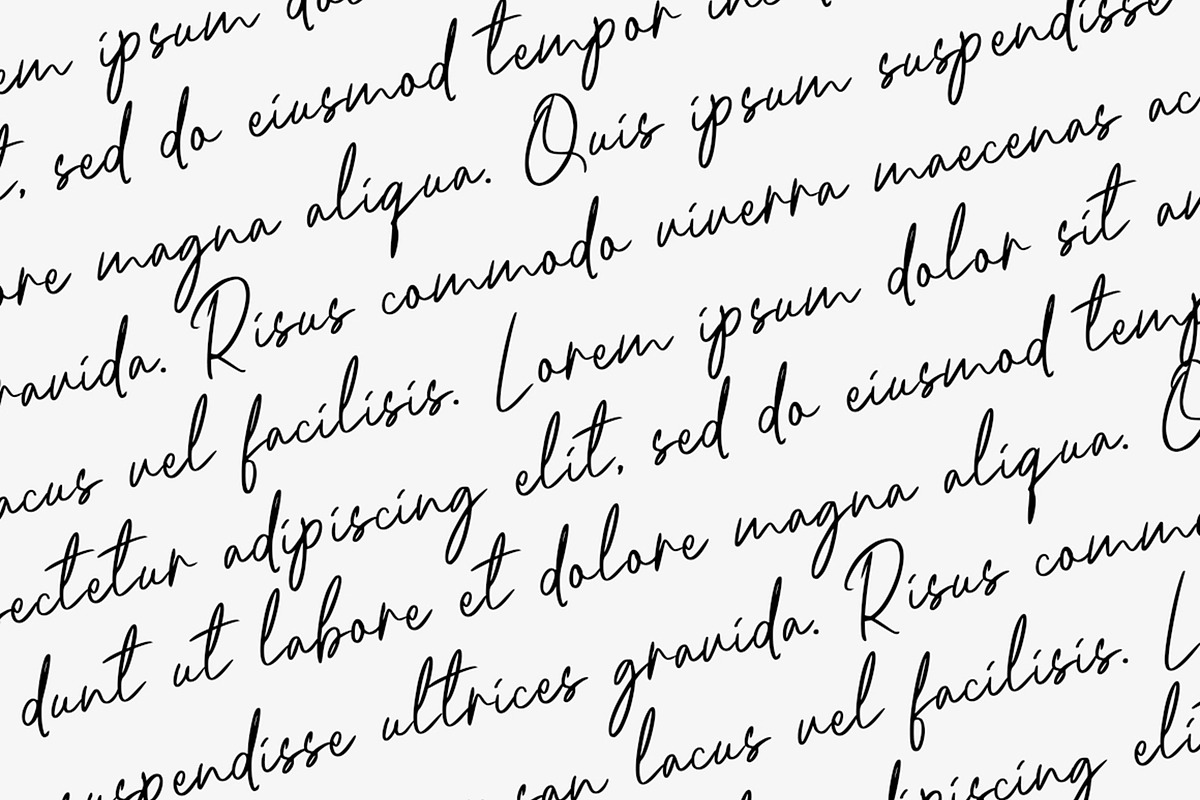 em ipsum do
t, sed do eiusmod tempor inc
ore magna aliqua. Quis ipsum suspendisse
ravida. Risus commodo viverra maecenas ac
acus vel facilisis. Lorem ipsum dolor sit am
sectetur adipiscing elit, sed do eiusmod temp
dunt ut labore et dolore magna aliqua. Q
suspendisse ultrices gravida. Risus commo
san lacus vel facilisis. L
dipiscing eli